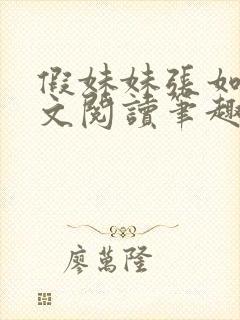 假妹妹张如
文閱讀筆趣
廖萬隆